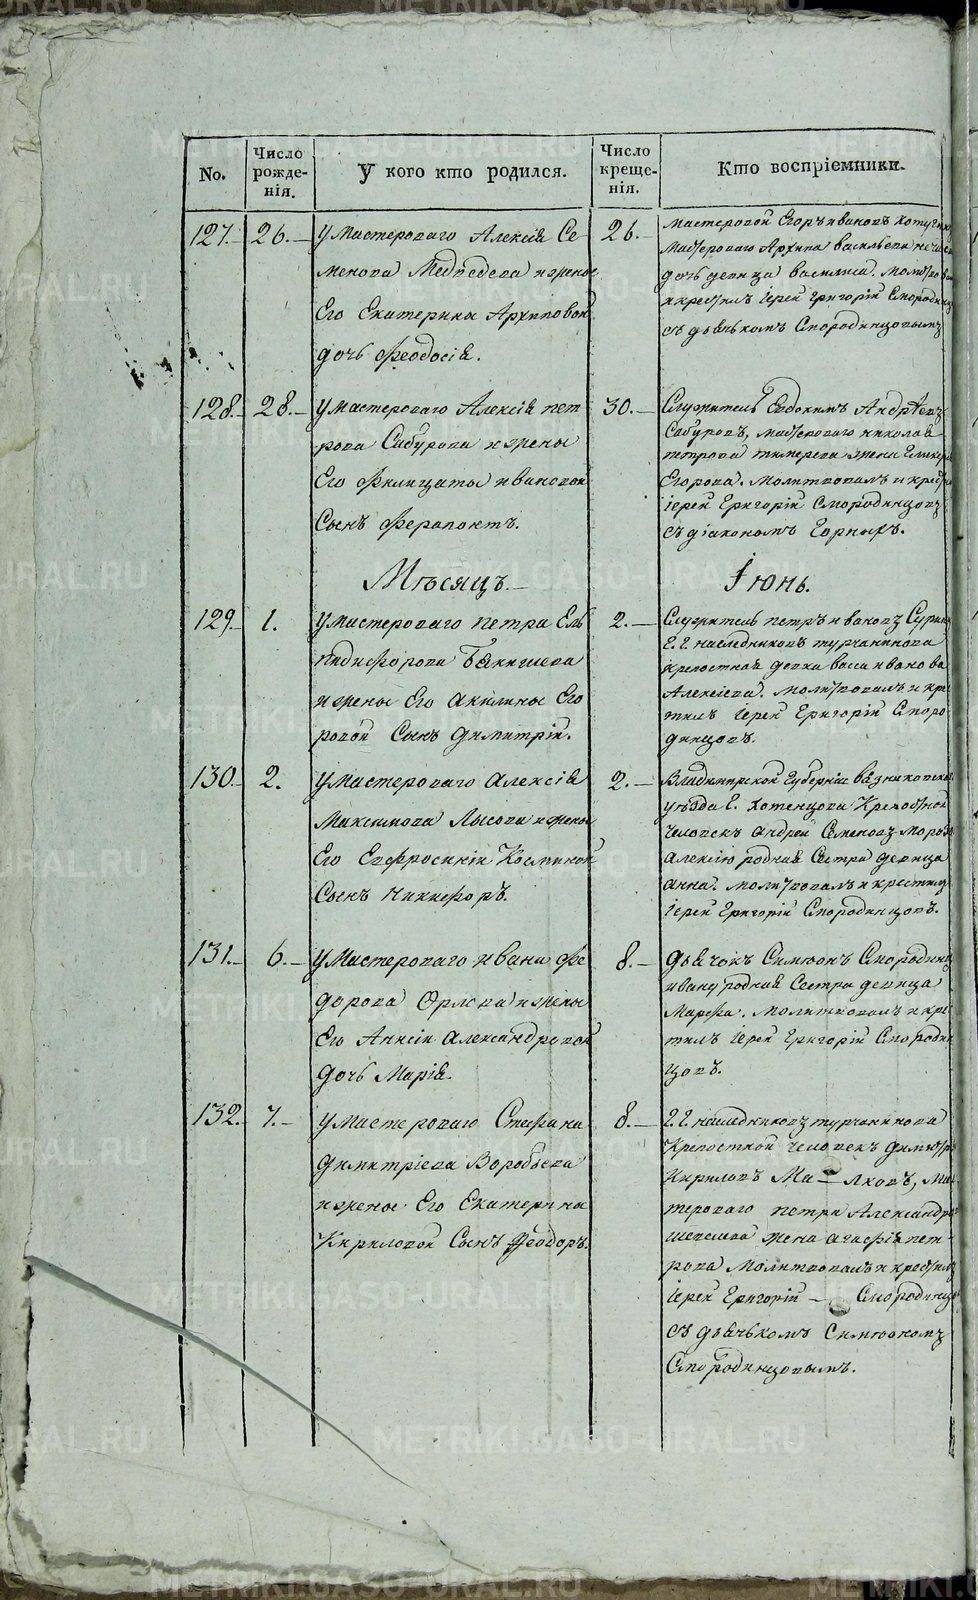 No.
Число рожде-
нія.
У кого кто родился.
Число креще-
нія.
Кто воспріемники.
127. 26. У Мастероваго Алексія Се-
менова Медведева и жены
Его Екатерины Архиповой
дочь Феодосія.
26. Мастеровой Егоръ Ивановъ
Мастероваго Архипа Васильева
дочь девица Василиса. Молитвова
и крестилъ Іерей Григорій Смородинц
съ дьячькомъ Смородинцовымъ
128. 28. У Мастероваго Алексія Пет
рова Сабурова и жены
Его Филицаты Ивановой
Сынъ Ферапонтъ.
30. Служитель Евдокимъ Андреевъ
Сабуровъ, Мастероваго Николая
Петрова жена
Егорова. Молитвовалъ и крест
Іерей Григорій Смородинцовъ
съ діакономъ Горныхъ.
Мѣсяцъ Іюнь.
129. 1. У Мастероваго Петра Ель
пидифорова и жены Его Акилины Его
ровой Сынъ Димитрій.
2. Служитель Петръ Ивановъ
Г. Г. наследниковъ Турчанинова
крепостная девка Васса Иванова
Алексіева. Молитвовалъ и кре
тилъ Іерей Григорій Сморо
динцовъ.
130. 2. У Мастероваго Алексія
Максимова Лысова и жены
Его Евфросиніи Космичной
Сынъ Никифоръ.
2. Владимирской Губерніи Вязниковска
уѣзда Г. Хотенцова Крепостной
человекъ Андрей Семеновъ
Алексію родная Сестра девица
Анна. Молитвовалъ и крестилъ
Іерей Григорій Смородинцовъ.
131. 6. У Мастероваго Ивана Фе
дорова Орлова и жены
Его Анисіи Александровой
дочь Марія.
8. Дьячокъ Симеонъ Смородинц
Ивану родная Сестра девица
Марфа. Молитвовалъ и кре
тилъ Іерей Григорій Смородин
цовъ.
132. 7. У Мастероваго Стефана
Димитріева Воробьева
и жены Его Екатерины
Кириловой Сынъ Феодоръ.
8. Г. Г. наследниковъ Турчанинова
Крепостной человекъ Димитрі
Кириловъ Ма - ляковъ, Мас
тероваго Петра Александро
жена Агафія Пет-
рова Молитвовалъ и крестилъ
Іерей Григорій - Смородинцо
съ дьячькомъ Симеономъ
Смородинцовымъ.